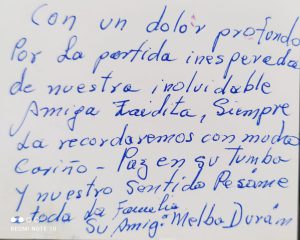 Con un dolor profundo
Por la partida inesperada
de nuestra inolvidable
Amiga Zaidita, Siempre
La recordaremos con mucho
Cariño - Paz en su tumba
Y nuestro Sentido Pesáme
a toda la Familia
Su Amiga Melba Durán
REDMI NOTE 10